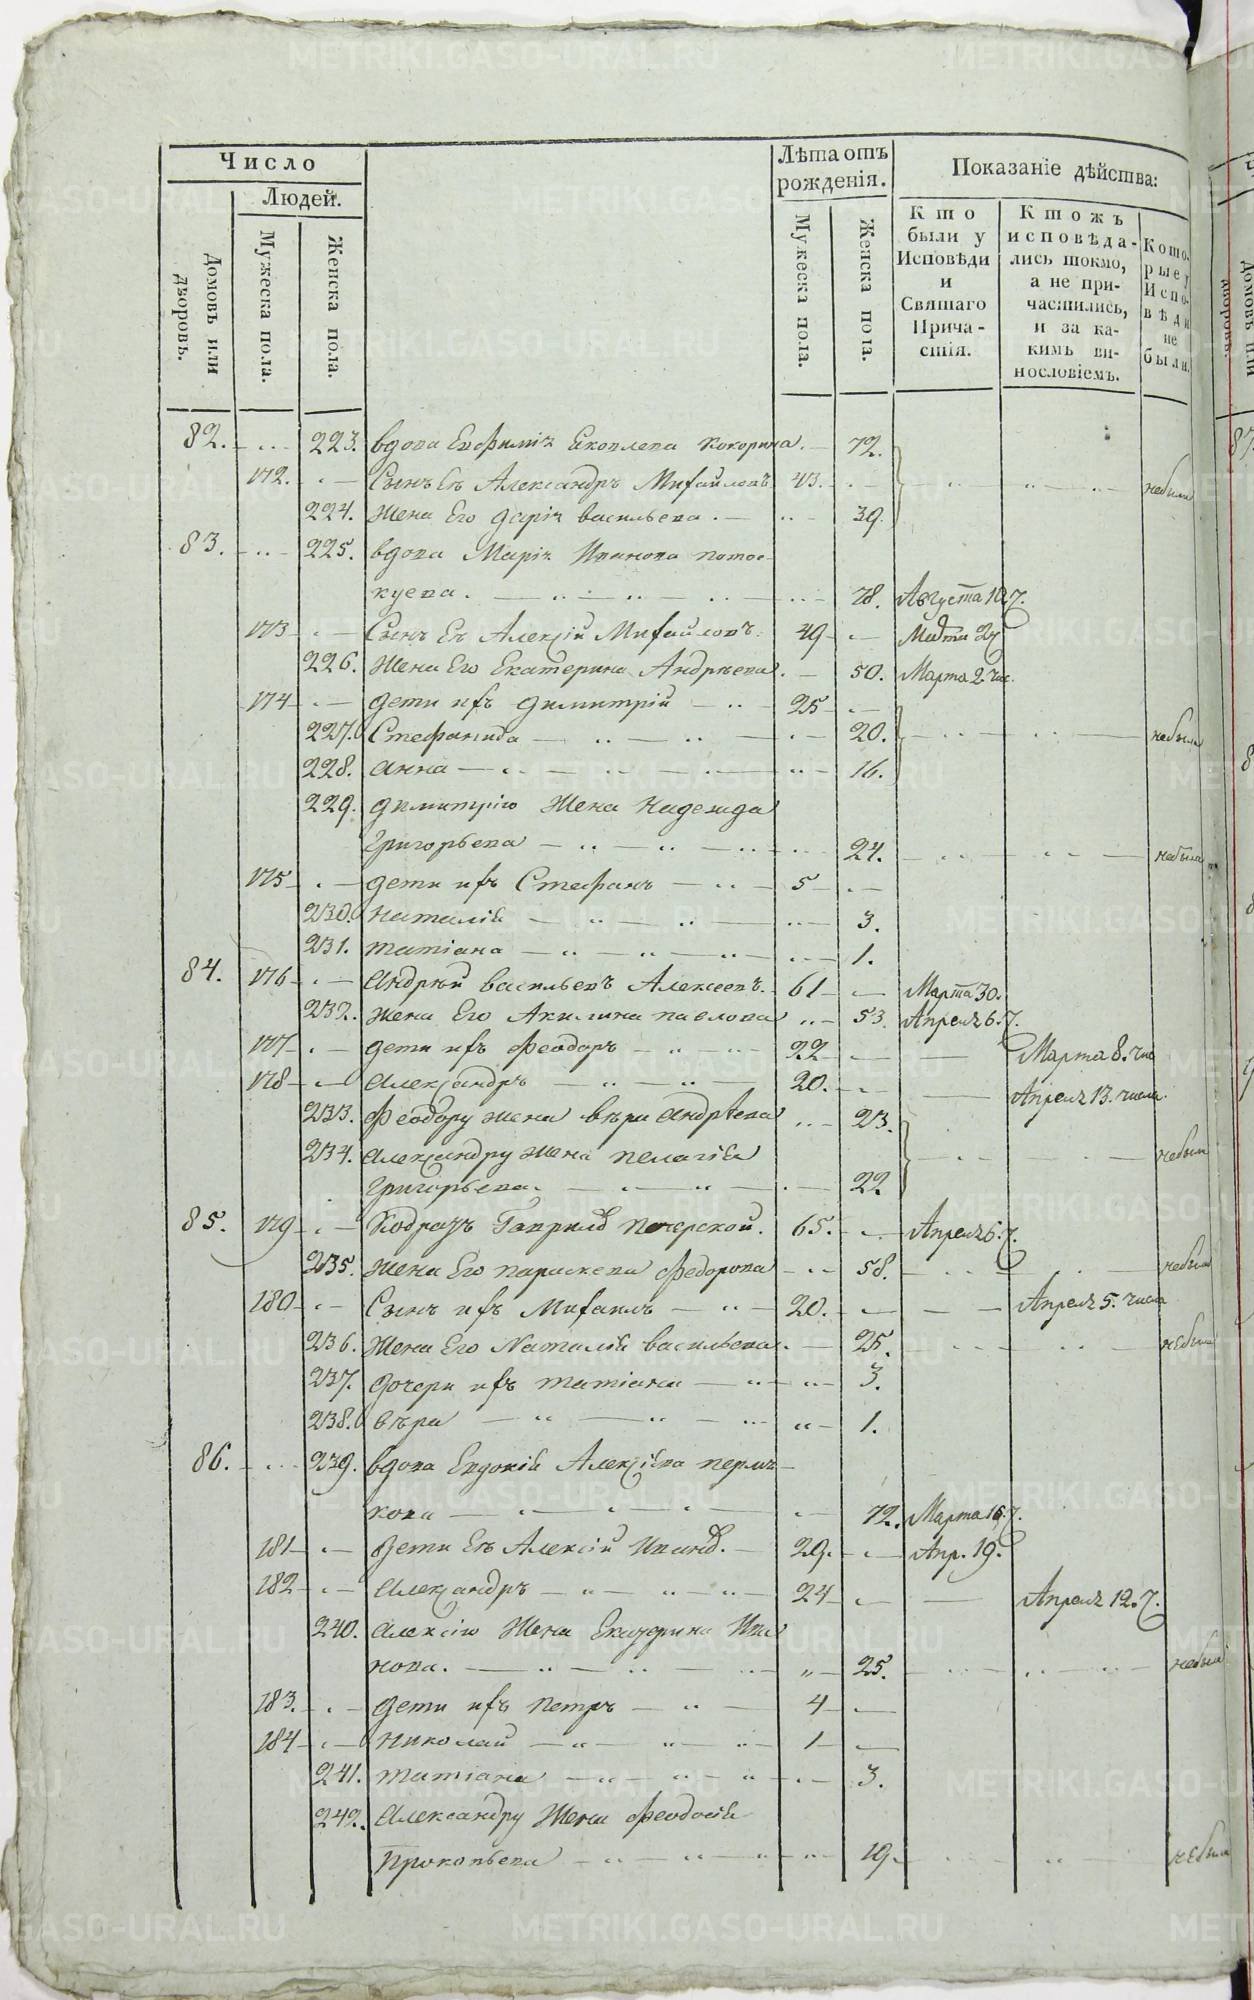 Число
Людей.
Домовъ или дворовъ.
Мужеска пола.
Женска пола.
Лѣта отъ рожденія.
Мужеска пола.
Женска пола.
Показаніе дѣйства:
Кто были у Исповѣди и Святаго Прича-стія.
Ктожъ исповѣда-лись токмо, а не при-частились, и за ка-кимъ ви-нословіемъ.
Кото-рые у Испо-вѣди не были.
82. 223. вдова Евфимія Яковлева Кокорина. 72.
172. Сынъ Ея Александръ Михайловъ 43. небыли
224. Жена Его Дарія васильева. 39.
83. 225. вдова Марія Иванова
куева. 78. Августа 10
173 Сынъ Ея Алексій Михайловъ. 49
226. Жена Его Екатерина Андреева. 50. Марта 2 чис.
174 дети ихъ Димитрій 25
227. Стефанида 20. небыли
228. Анна 16.
229. Димитрію Жена Надежда
Григорьева 24. небыла
175 дети ихъ Стефанъ 5
230. Наталія 3.
231. Татіана 1.
84. 176 Андрей васильевъ Алексеевъ. 61 Марта 30.
232. Жена Его Акилина павлова 53. Апреля 6. ч.
177 дети ихъ Феодоръ 22 Марта 8. чис
178 Александръ 20. Апреля 13. числа
233. Феодору жена вѣра Андрѣева 23. небыли
234. Александру жена Пелагія
Григорьева. 22.
85. 179 Кодратъ Гаврилов Печерской. 65. Апреля 6. ч.
235. Жена Его параскева Федорова 58. небыла
180 Сынъ ихъ Михаилъ 20. Апреля 5. числа
236. Жена Его Наталія васильева. 25. небыла
237. дочери ихъ Татіана 3.
238. вѣра 1.
86. 239. вдова Евдокія Алексіева пермя-
кова 72. Марта 16. ч.
181 Дети Ея Алексій Иванов. 29. Апр. 19.
182 Александръ 24 Апреля 12. ч.
240. Алексію Жена Екатерина Ива
нова. 25. небыла
183. дети ихъ Петръ 4
184 Николай 1
241. Татіана 3.
242. Александру Жена Феодосія
Прокопьева 19. небыла
87.
METRIKI.GASO-URAL.RU